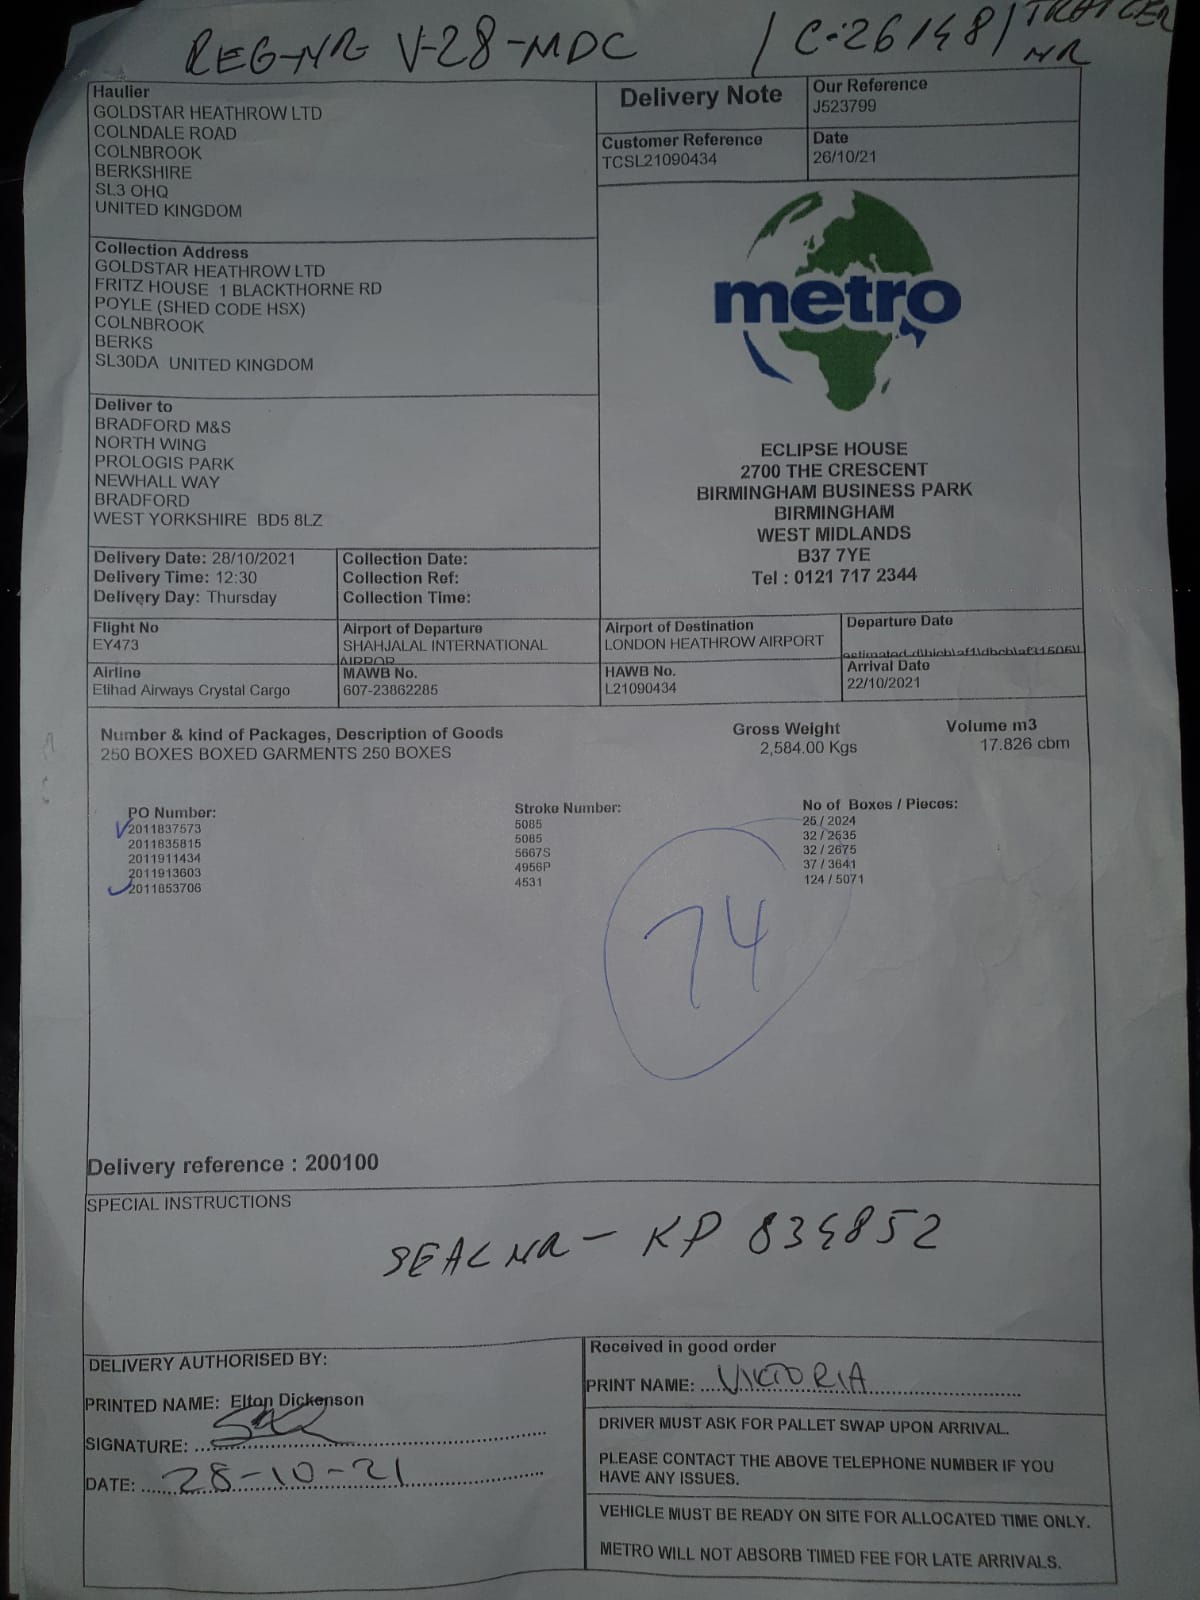 REG-NR V-28-MDC / C-26148 / TRAILER NR
Haulier
GOLDSTAR HEATHROW LTD
COLNDALE ROAD
COLNBROOK
BERKSHIRE
SL3 OHQ
UNITED KINGDOM
Delivery Note
Our Reference
J523799
Customer Reference
TCSL21090434
Date
26/10/21
Collection Address
GOLDSTAR HEATHROW LTD
FRITZ HOUSE 1 BLACKTHORNE RD
POYLE (SHED CODE HSX)
COLNBROOK
BERKS
SL30DA UNITED KINGDOM
metro
ECLIPSE HOUSE
2700 THE CRESCENT
BIRMINGHAM BUSINESS PARK
BIRMINGHAM
WEST MIDLANDS
B37 7YE
Tel : 0121 717 2344
Deliver to
BRADFORD M&S
NORTH WING
PROLOGIS PARK
NEWHALL WAY
BRADFORD
WEST YORKSHIRE BD5 8LZ
Delivery Date: 28/10/2021
Delivery Time: 12:30
Delivery Day: Thursday
Collection Date:
Collection Ref:
Collection Time:
Flight No
EY473
Airport of Departure
SHAHJALAL INTERNATIONAL
AIRPOR
Airport of Destination
LONDON HEATHROW AIRPORT
Departure Date
Airline
Etihad Airways Crystal Cargo
MAWB No.
607-23862285
HAWB No.
L21090434
Arrival Date
22/10/2021
Number & kind of Packages, Description of Goods
250 BOXES BOXED GARMENTS 250 BOXES
Gross Weight
2,584.00 Kgs
Volume m3
17.826 cbm
PO Number: Stroke Number: No of Boxes / Pieces:
2011837573 5085 25 / 2024
2011835815 5085 32 / 2635
2011911434 5667S 32 / 2675
2011913603 4956P 37 / 3641
2011853706 4531 124 / 5071
74
Delivery reference : 200100
SPECIAL INSTRUCTIONS
SEAL NR - KP 834852
DELIVERY AUTHORISED BY:
PRINTED NAME: Elton Dickenson
SIGNATURE:
DATE: 28-10-21
Received in good order
PRINT NAME: VIKTORIA
DRIVER MUST ASK FOR PALLET SWAP UPON ARRIVAL.
PLEASE CONTACT THE ABOVE TELEPHONE NUMBER IF YOU
HAVE ANY ISSUES.
VEHICLE MUST BE READY ON SITE FOR ALLOCATED TIME ONLY.
METRO WILL NOT ABSORB TIMED FEE FOR LATE ARRIVALS.